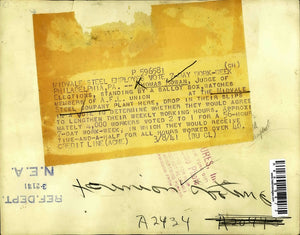 P 59668
MIDVALE STEEL EMPLOYEE VOTE 7-DAY WORK-WEEK
PHILADELPHIA, PA. -- JUDGE OF
ELECTIONS, STANDING BY A BALLOT BOX, WATCHES
MEMBERS OF A.F.L. UNION AT THE MIDVALE
STEEL COMPANY PLANT HERE, DROP IN THEIR
TO DETERMINE WHETHER THEY WOULD AGREE
TO LENGTHEN THEIR WEEKLY WORKING HOURS. APPROXI
MATELY WORKERS VOTED 2 TO 1 FOR A 56-HOUR
7-DAY WORK-WEEK, IN WHICH THEY WOULD RECEIVE
TIME-AND-A-HALF FOR ALL HOURS WORKED OVER 40.
CREDIT LINE (ACME) 3/8/41 (NU CL)
REF. DEPT.
3-21-41
N.E.A.
A2434